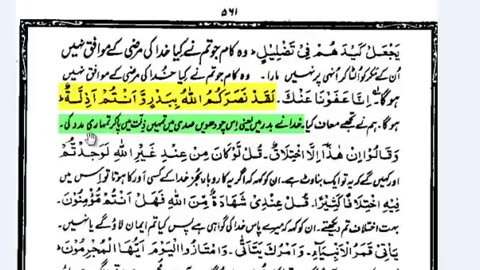 ۵۶۱
یَجْعَلْ کَیْدَ ھُمْ فِیْ تَضْلِیْلٍ وہ کام جو تم نے کیا خدا کی مرضی کے موافق نہیں
اُن کے مکر کو اُلٹا کر اُنہی پر نہیں مارا۔ وہ کام جو تم نے کیا خدا کی مرضی کے موافق نہیں
ہوگا۔ اِنَّا عَفَوْنَا عَنْکَ۔ لَقَدْ نَصَرَکُمُ اللّٰہُ بِبَدْرٍ وَّ اَنْتُمْ اَذِلَّةٌ
ہوگا۔ ہم نے تجھے معاف کیا۔ خدا نے بدر میں یعنی اس چودھویں صدی میں تمہیں ذلت میں پاکر تمہاری مدد کی۔
وَقَالُوْا اِنْ ھٰذَا اِلَّا اخْتِلَاقٌ۔ قُلْ لَوْ کَانَ مِنْ عِنْدِ غَیْرِ اللّٰہِ لَوَجَدْتُّمْ
اور کہیں گے کہ یہ تو ایک بناوٹ ہے۔ ان کو کہہ کہ اگر یہ کاروبار بجز خدا کے کسی اور کا ہوتا تو اس میں
فِیْہِ اخْتِلَافًا کَثِیْرًا۔ قُلْ عِنْدِیْ شَھَادَةٌ مِّنَ اللّٰہِ فَھَلْ اَنْتُمْ مُّؤْمِنُوْنَ۔
بہت اختلاف تم دیکھتے۔ ان کو کہہ کہ میرے پاس خدا کی گواہی ہے پس کیا تم ایمان لاؤ گے یا نہیں۔
یَاْتِیْ قَمَرُ الْاَنْبِیَآءِ۔ وَاَمْرُکَ یَتَاَتّٰی۔ وَامْتَازُوا الْیَوْمَ اَیُّھَا الْمُجْرِمُوْنَ۔